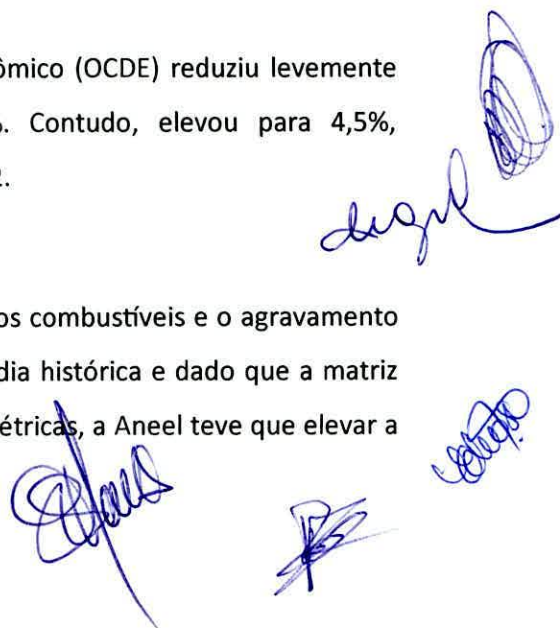 ômico (OCDE) reduziu levemente
. Contudo, elevou para 4,5%,
2.
os combustíveis e o agravamento
dia histórica e dado que a matriz
étricas, a Aneel teve que elevar a